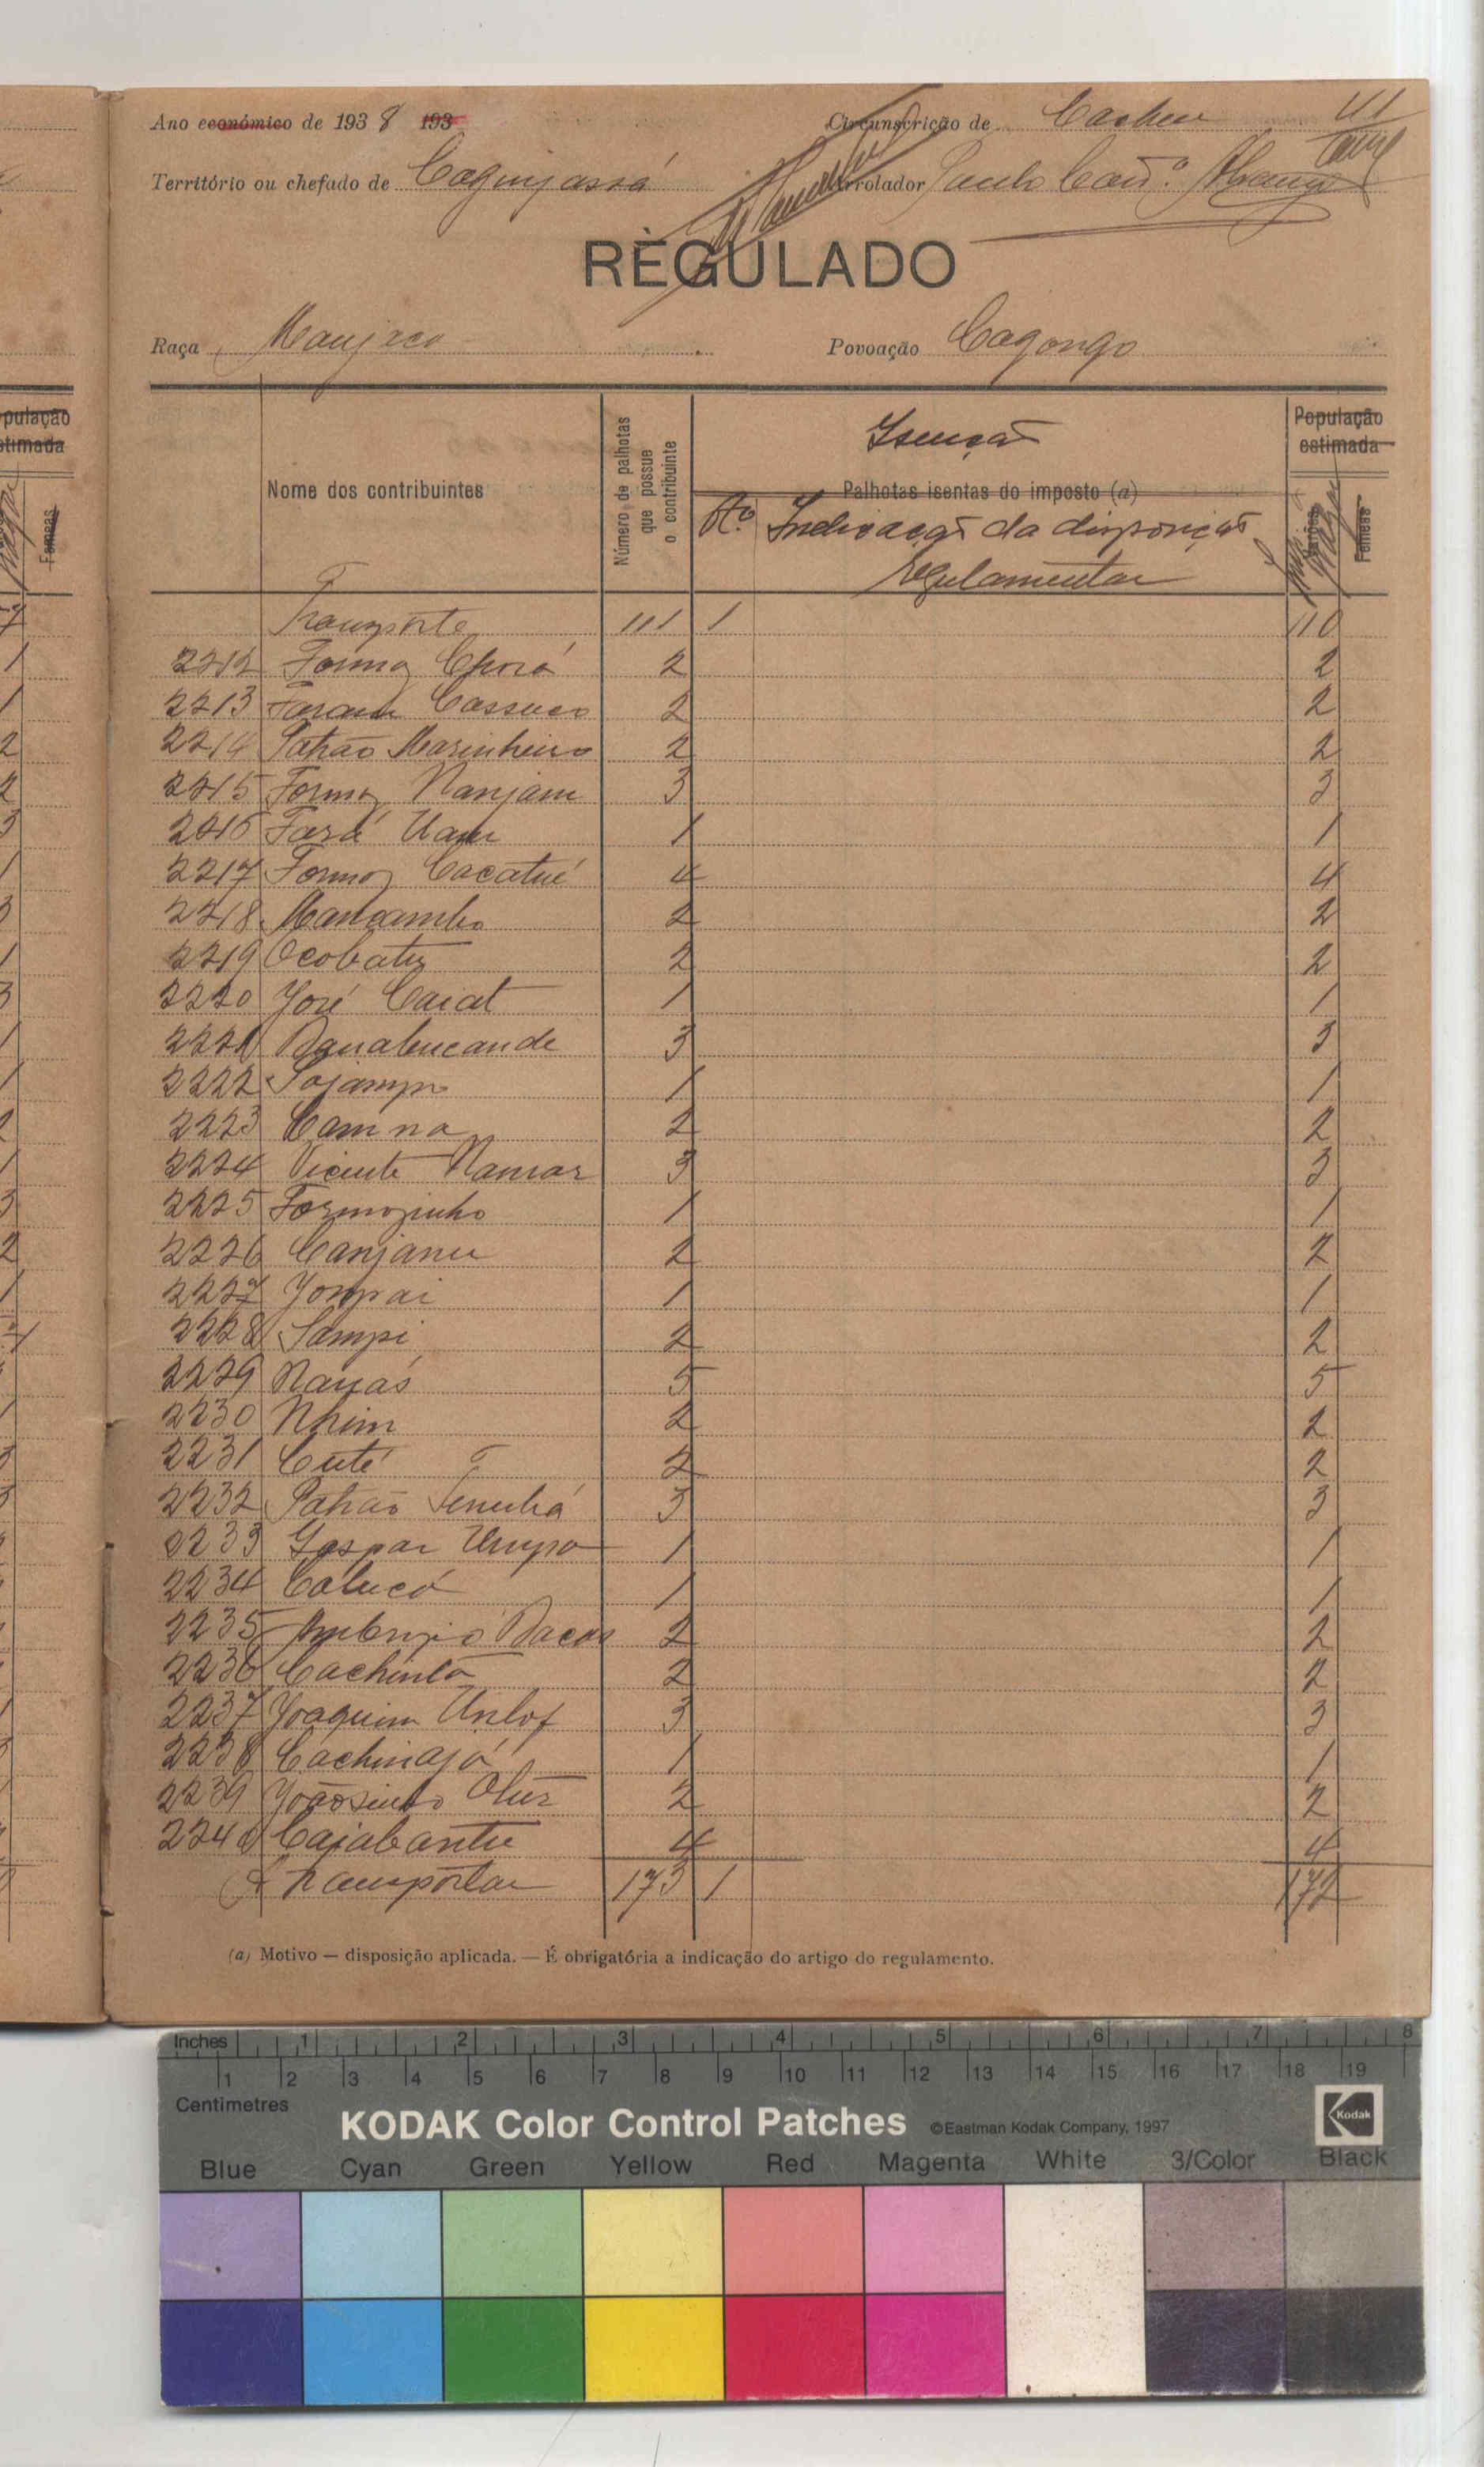 Ano económico de 1938 193
Circunscrição de Cacheu
Território ou chefado de Caguijassá
Arrolador Paulo
RÈGULADO
Raça Manjaco
Povoação Cagongo
População estimada
Femeas
Nome dos contribuintes
Número de palhotas que possue o contribuinte
Isenção
Palhotas isentas do imposto (a)
No. Indicação da disposição regulamentar
População estimada
Varões
Femeas
Transporte 111 1 110
2212 Formoz Choró 2 2
2213 Cassuco 2 2
2214 Patrão Marinheiro 2 2
2215 Formoz Nanjam 3 3
2216 Fará Uam 1 1
2217 Formoz Cacatué 4 4
2218 Mancambo 2 2
2219 Ocobatu 2 2
2220 José Caiat 1 1
2221 3 3
2222 1 1
2223 Cam na 2 2
2224 Vicente Namar 3 3
2225 Formozinho 1 1
2226 Canjanu 2 2
2227 Jompai 1 1
2228 Sampi 2 2
2229 Nauás 5 5
2230 Nhim 2 2
2231 Cuté 2 2
2232 Patrão 3 3
2233 Gaspar Umpa 1 1
2234 Calucó 1 1
2235 Ambrozio 2 2
2236 Cachinta 2 2
2237 Joaquim Unlof 3 3
2238 Cachinajá 1 1
2239 Joãosinho 2 2
2240 Caiabantu 4 4
A transportar 173 1 172
(a) Motivo — disposição aplicada. — É obrigatória a indicação do artigo do regulamento.
Inches 1 2 3 4 5 6 7 8
1 2 3 4 5 6 7 8 9 10 11 12 13 14 15 16 17 18 19
Centimetres
KODAK Color Control Patches ©Eastman Kodak Company, 1997 Kodak
Blue Cyan Green Yellow Red Magenta White 3/Color Black